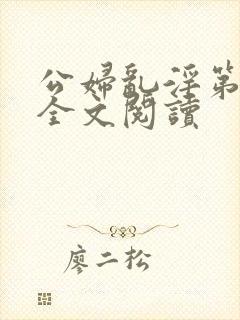 公婦亂淫第
全文閱讀
廖二松